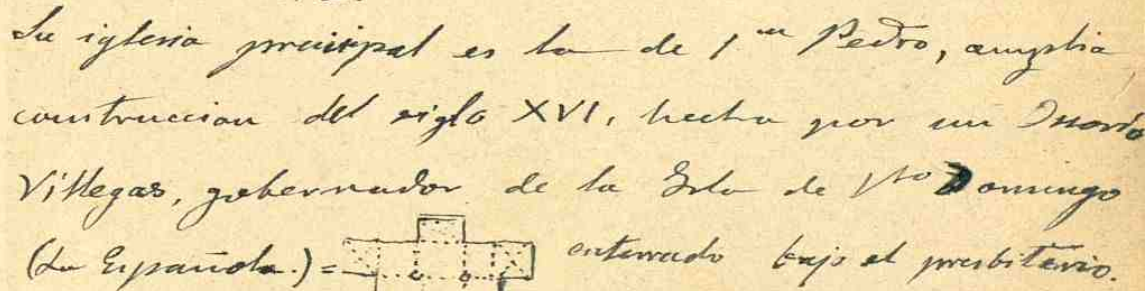 Su iglesia principal es la de Sn Pedro, amplia
construccion del siglo XVI, hecha por un Osorio
Villegas, gobernador de la Isla de Sto Domingo
(La Española.) = enterrado bajo el presbiterio.